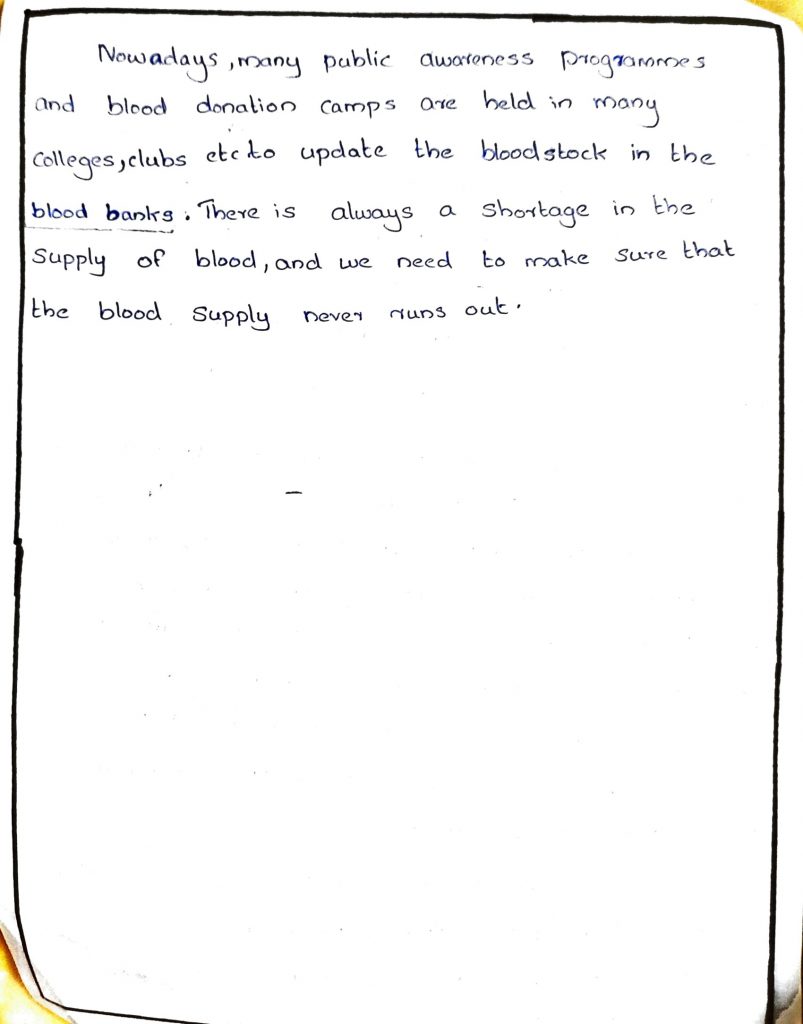 Nowadays, many public awareness programmes
and blood donation camps are held in many
colleges, clubs etc to update the blood stock in the
blood banks. There is always a shortage in the
supply of blood, and we need to make sure that
the blood supply never runs out.